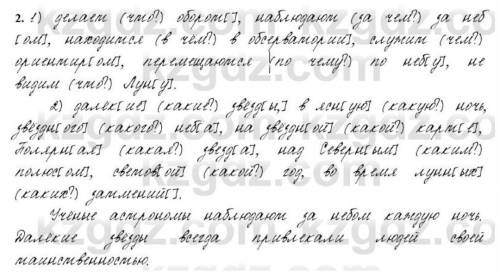 2. 1) делает (что?) оборот[], наблюдают (за чем?) за неб
[ом], находится (в чём?) в обсерватории[], служит (чем?)
ориентир[ом], перемещаются (по чему?) по неб[у], не
видим (что?) Лун[у].
2) далёк[ие] (какие?) звёзд[ы,] в ясн[ую] (какую?) ночь,
звёздн[ого] (какого?) неб[а], на звёздн[ой] (какой?) карт[е],
Полярн[ая] (какая?) звезд[а], над Северн[ым] (каким?)
полюс[ом], светов[ой] (какой?) год, во время лунн[ых]
(каких?) затмений[].
Учёные астрономы наблюдают за небом каждую ночь.
Далёкие звёзды всегда привлекали людей своей
таинственностью.
kzgdz.kz